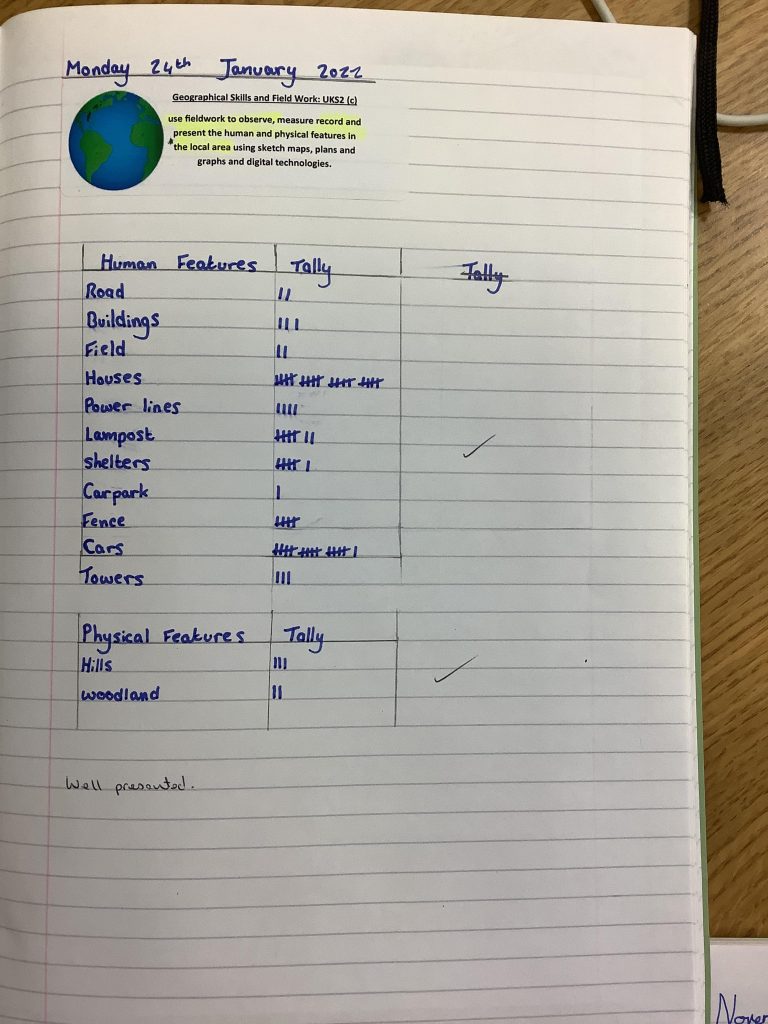 Monday 24th January 2022
Geographical Skills and Field Work: UKS2 (c)
use fieldwork to observe, measure record and
present the human and physical features in
the local area using sketch maps, plans and
graphs and digital technologies.
Human Features Tally Tally
Road II
Buildings III
Field II
Houses 卌 卌 卌 卌
Power lines IIII
Lampost 卌 II
shelters 卌 I
Carpark I
Fence 卌
Cars 卌 卌 卌 I
Towers III
Physical Features Tally
Hills III
woodland II
Well presented.